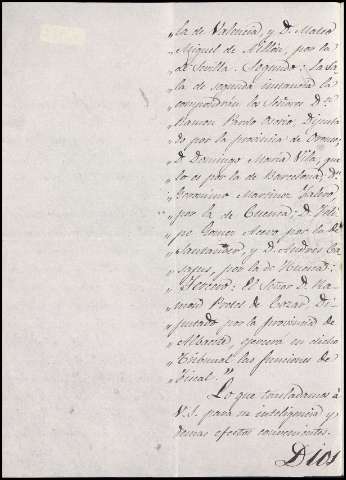 „la de Valencia, y D. Mateo
„Miguel de Millan, por la
„de Sevilla. Segundo: La Sa
„la de segunda instancia la
„compondrán los Señores Dn.
„Ramon Pardo Osorio Diputa
„do por la provincia de Orense,
„D. Domingo Maria Vila, que
„lo es por la de Barcelona, Dn.
„Geronimo Martinez Falero
„por la de Cuenca; D. Feli
„pe Gomez Acevo por la de
„Santander, y D. Andres
„por la de Huesca:
„Tercero: El Señor D. Ra
„mon Pretel de Cozar Di
„putado por la provincia de
„Albacete, ejercera en dicho
„Tribunal las funciones de
„Fiscal."
Lo que trasladamos á
V.S. para su inteligencia y
demas efectos convenientes.
Dios